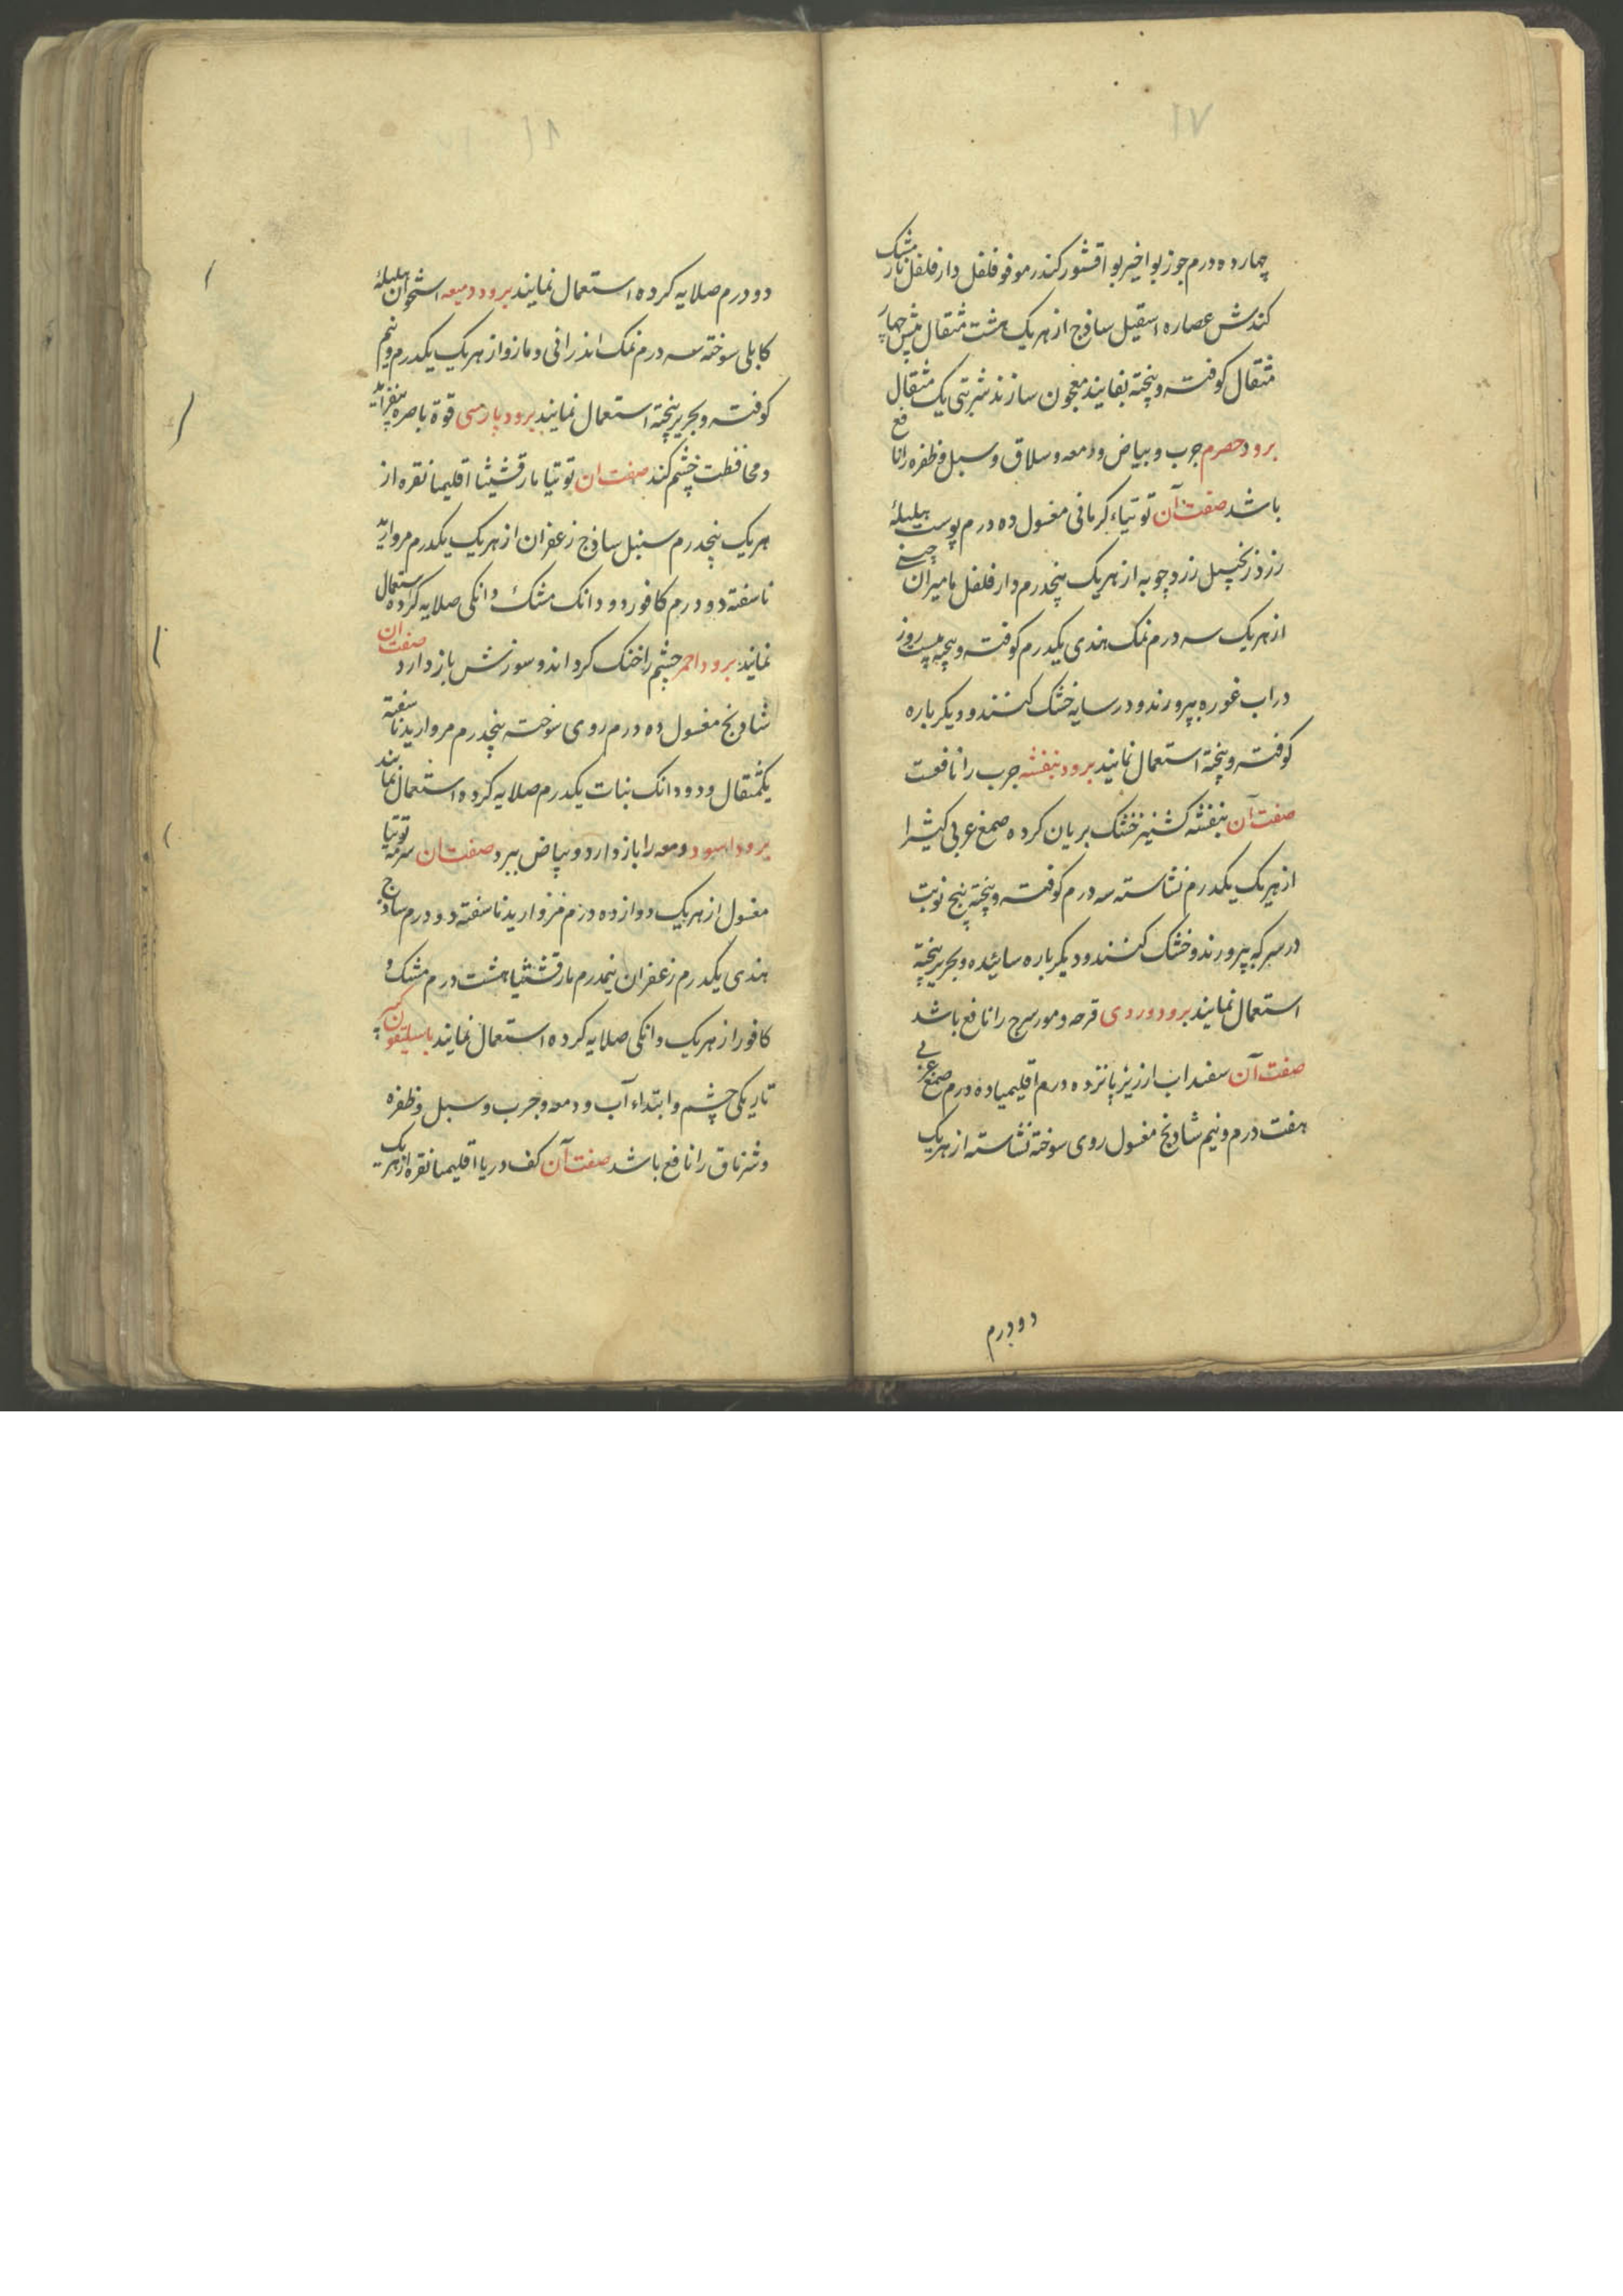 ١٧
چهارده درم جوز بوا خیر بوا قشور کندر مو فو فلفل دار فلفل نار مشک
کندش عصاره اسقیل ساذج از هر یک هشت مثقال بیش چهار
مثقال کوفته و پخته بقایند معجون سازند شربتی یک مثقال
برود حصرم جرب و بیاض و دمعه و سلاق و سبل و ظفره را نافع
باشد صفت آن توتیاء کرمانی مغسول ده درم پوست هلیله
زرد زنجبیل زرد چوبه از هر یک پنجدرم دار فلفل مامیران چینی
از هر یک سه درم نمک هندی یکدرم کوفته و بیخته بیست روز
در اب غوره بپرورند و در سایه خشک کنند و دیکر باره
کوفته و بیخته استعمال نمایند برود بنفشه جرب را نافعست
صفت آن بنفشه کشنیز خشک بریان کرده صمغ عربی کتیرا
از هر یک یکدرم نشاسته سه درم کوفته و بیخته پنج نوبت
در سرکه بپرورند و خشک کنند و دیکر باره سائیده و بحریر بیخته
استعمال نمایند برود وردی قرحه و مورسرج را نافع باشد
صفت آن سفیداب ارزیز پانزده درم اقلیمیا ده درم صمغ عربی
هفت درم و نیم شادنج مغسول روی سوخته نشاسته از هر یک
دو درم
١٨
دو درم صلایه کرده استعمال نمایند برود دمیعه استخوان هلیله
کابلی سوخته سه درم نمک اندرانی و مازو از هر یک یکدرم و نیم
کوفته و بحریر بیخته استعمال نمایند برود پارسی قوة باصره بیفزاید
و محافظت چشم کند صفت ان توتیا مارقشیثا اقلیمیا نقره از
هر یک پنجدرم سنبل ساذج زعفران از هر یک یکدرم مروارید
ناسفته دو درم کافور دو دانک مشک دانکی صلایه کرده استعمال
نمایند برود احمر چشم را خنک کرداند و سوزش باز دارد صفت ان
شادنج مغسول ده درم روی سوخته پنجدرم مروارید ناسفته
یکمثقال و دو دانک نبات یکدرم صلایه کرده استعمال نمایند
برود اسود دمعه را باز دارد و بیاض ببرد صفت ان سرمه توتیا
مغسول از هر یک دوازده درم مروارید ناسفته دو درم ساذج
هندی یکدرم زعفران نیمدرم مارقشیثیا هشت درم مشک و
کافور از هر یک دانکی صلایه کرده استعمال نمایند باسلیقون کبیر
تاریکی چشم و ابتداء آب و دمعه و جرب و سبل و ظفره
و شرناق را نافع باشد صفت آن کف دریا اقلیمیا نقره از هر یک